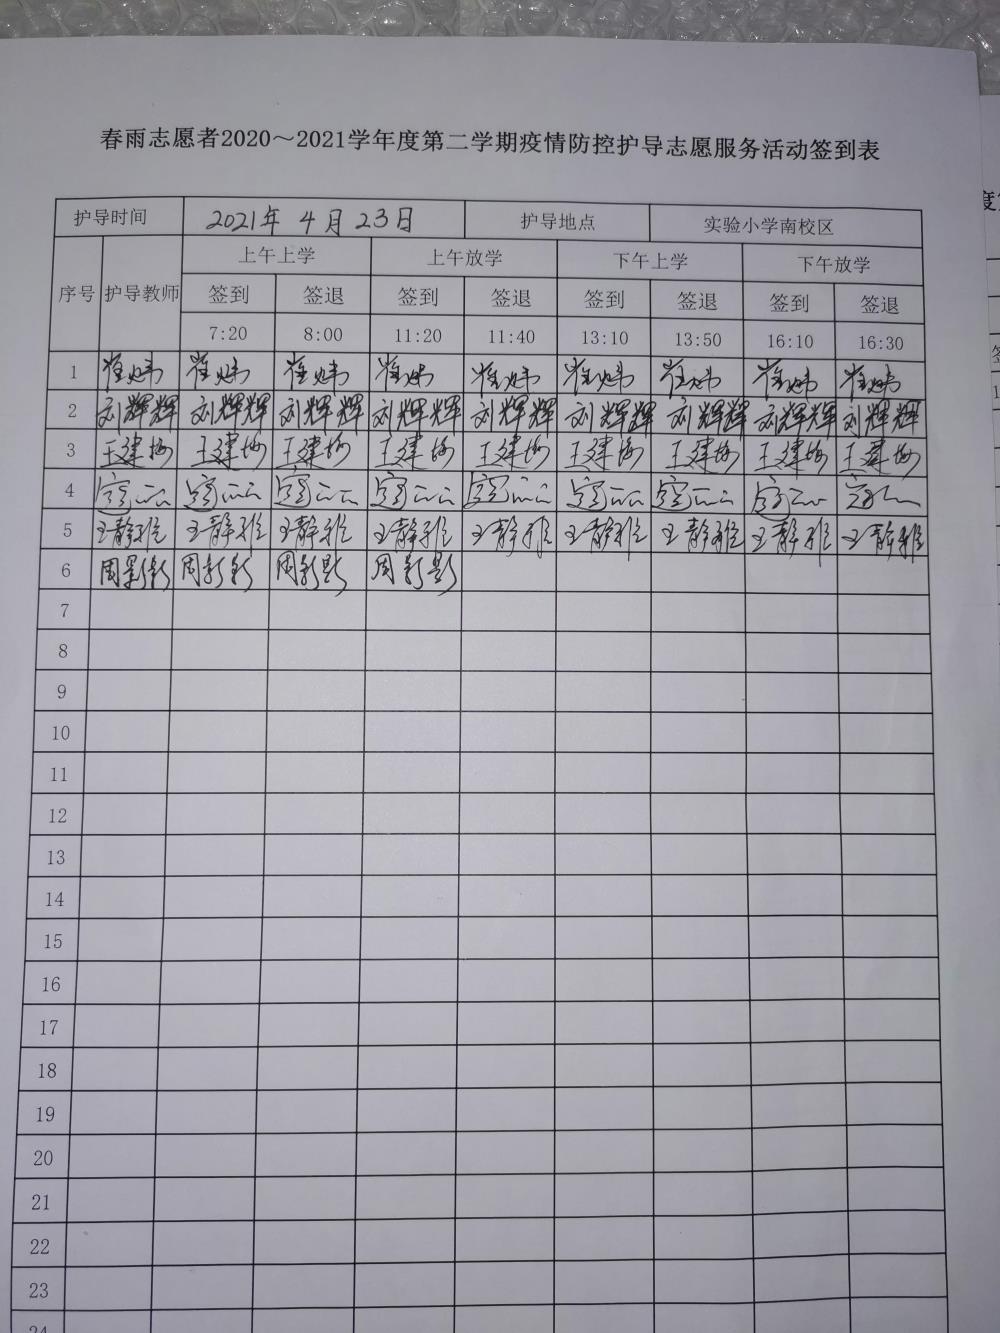 春雨志愿者2020～2021学年度第二学期疫情防控护导志愿服务活动签到表
护导时间 2021年 4月 23日 护导地点 实验小学南校区
序号 护导教师 上午上学 上午放学 下午上学 下午放学
签到 签退 签到 签退 签到 签退 签到 签退
7:20 8:00 11:20 11:40 13:10 13:50 16:10 16:30
1 崔炜 崔炜 崔炜 崔炜 崔炜 崔炜 崔炜 崔炜 崔炜
2 刘辉辉 刘辉辉 刘辉辉 刘辉辉 刘辉辉 刘辉辉 刘辉辉 刘辉辉 刘辉辉
3 王建梅 王建梅 王建梅 王建梅 王建梅 王建梅 王建梅 王建梅 王建梅
4
5 王静雅 王静雅 王静雅 王静雅 王静雅 王静雅 王静雅 王静雅 王静雅
6 周影影 周影影 周影影 周影影
7
8
9
10
11
12
13
14
15
16
17
18
19
20
21
22
23
24